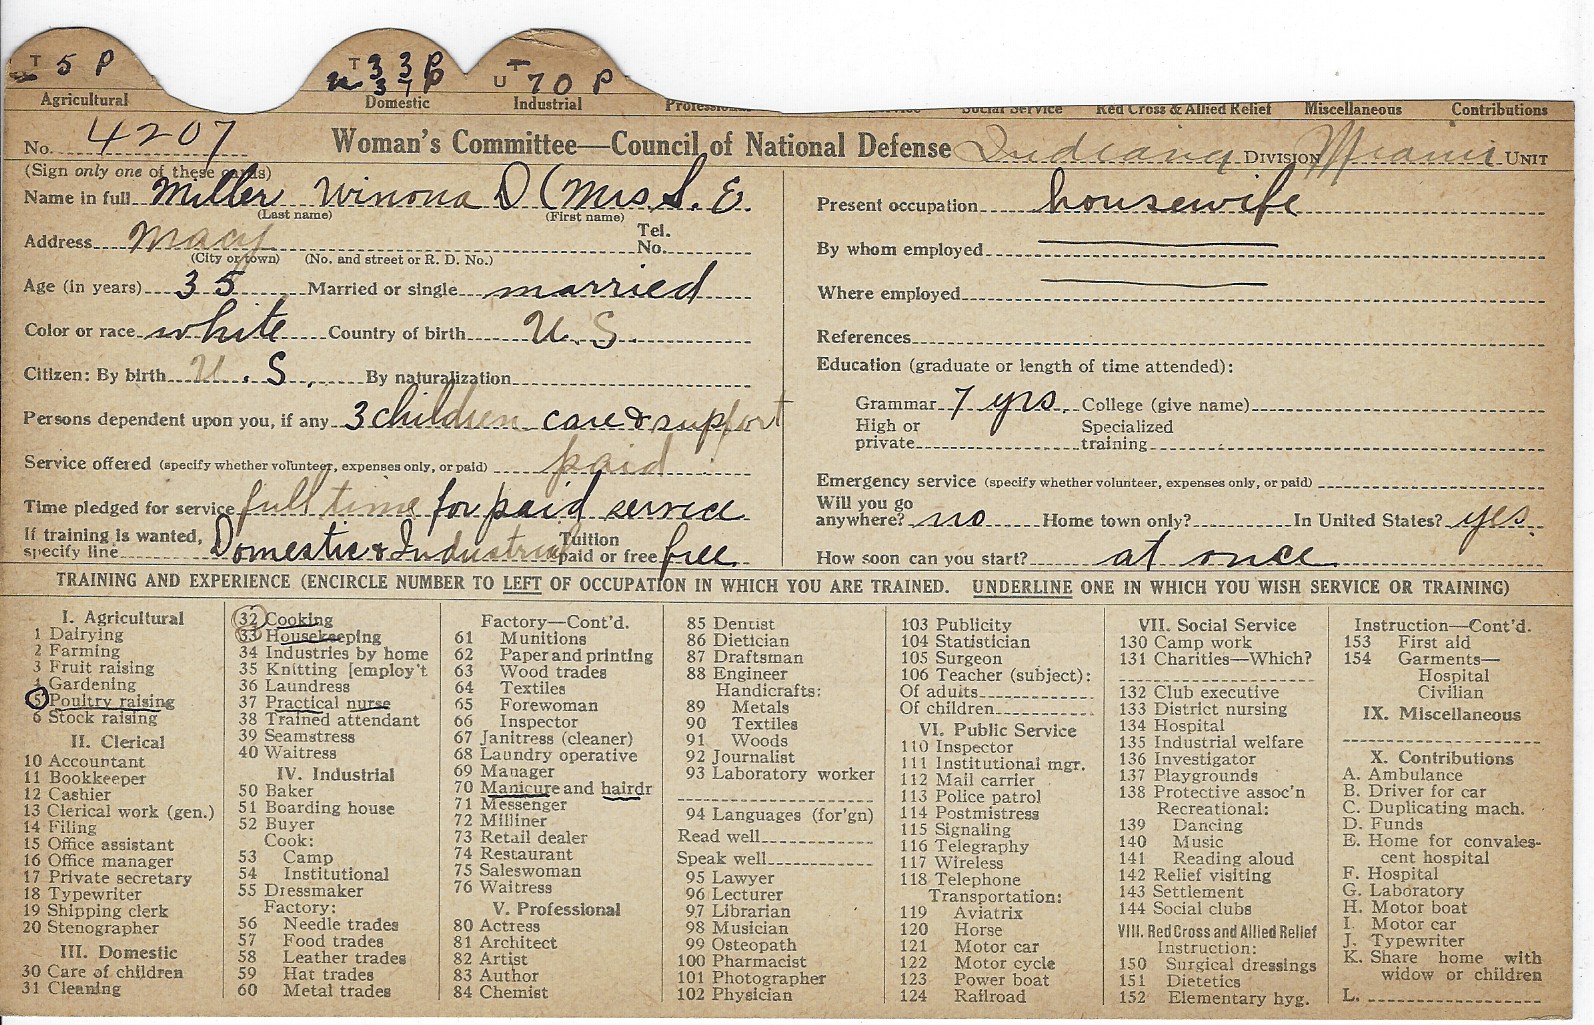 T 5 P
T 3 3 P
U 3 7 P
U T 70 P
Agricultural Domestic Industrial Social Service Red Cross & Allied Relief Miscellaneous Contributions
No. 4207 Woman's Committee—Council of National Defense Indiana DIVISION Miami UNIT
(Sign only one of these cards)
Name in full Miller Winona D (Mrs. S. E.
(Last name) (First name)
Address Macy Tel. No.
(City or town) (No. and street or R. D. No.)
Age (in years) 35 Married or single married
Color or race white Country of birth U. S.
Citizen: By birth U. S. By naturalization
Persons dependent upon you, if any 3 children care & support
Service offered (specify whether volunteer, expenses only, or paid) paid
Time pledged for service full time for paid service
If training is wanted, specify line Domestic & Industrial Tuition paid or free free
Present occupation housewife
By whom employed
Where employed
References
Education (graduate or length of time attended):
Grammar 7 yrs. College (give name)
High or private Specialized training
Emergency service (specify whether volunteer, expenses only, or paid)
Will you go anywhere? no Home town only? In United States? yes.
How soon can you start? at once
TRAINING AND EXPERIENCE (ENCIRCLE NUMBER TO LEFT OF OCCUPATION IN WHICH YOU ARE TRAINED. UNDERLINE ONE IN WHICH YOU WISH SERVICE OR TRAINING)
I. Agricultural
1 Dairying
2 Farming
3 Fruit raising
4 Gardening
5 Poultry raising
6 Stock raising
II. Clerical
10 Accountant
11 Bookkeeper
12 Cashier
13 Clerical work (gen.)
14 Filing
15 Office assistant
16 Office manager
17 Private secretary
18 Typewriter
19 Shipping clerk
20 Stenographer
III. Domestic
30 Care of children
31 Cleaning
32 Cooking
33 Housekeeping
34 Industries by home
35 Knitting [employ't
36 Laundress
37 Practical nurse
38 Trained attendant
39 Seamstress
40 Waitress
IV. Industrial
50 Baker
51 Boarding house
52 Buyer
Cook:
53 Camp
54 Institutional
55 Dressmaker
Factory:
56 Needle trades
57 Food trades
58 Leather trades
59 Hat trades
60 Metal trades
Factory—Cont'd.
61 Munitions
62 Paper and printing
63 Wood trades
64 Textiles
65 Forewoman
66 Inspector
67 Janitress (cleaner)
68 Laundry operative
69 Manager
70 Manicure and hairdr
71 Messenger
72 Milliner
73 Retail dealer
74 Restaurant
75 Saleswoman
76 Waitress
V. Professional
80 Actress
81 Architect
82 Artist
83 Author
84 Chemist
85 Dentist
86 Dietician
87 Draftsman
88 Engineer
Handicrafts:
89 Metals
90 Textiles
91 Woods
92 Journalist
93 Laboratory worker
94 Languages (for'gn)
Read well
Speak well
95 Lawyer
96 Lecturer
97 Librarian
98 Musician
99 Osteopath
100 Pharmacist
101 Photographer
102 Physician
103 Publicity
104 Statistician
105 Surgeon
106 Teacher (subject):
Of adults
Of children
VI. Public Service
110 Inspector
111 Institutional mgr.
112 Mail carrier
113 Police patrol
114 Postmistress
115 Signaling
116 Telegraphy
117 Wireless
118 Telephone
Transportation:
119 Aviatrix
120 Horse
121 Motor car
122 Motor cycle
123 Power boat
124 Railroad
VII. Social Service
130 Camp work
131 Charities—Which?
132 Club executive
133 District nursing
134 Hospital
135 Industrial welfare
136 Investigator
137 Playgrounds
138 Protective assoc'n
Recreational:
139 Dancing
140 Music
141 Reading aloud
142 Relief visiting
143 Settlement
144 Social clubs
VIII. Red Cross and Allied Relief
Instruction:
150 Surgical dressings
151 Dietetics
152 Elementary hyg.
Instruction—Cont'd.
153 First aid
154 Garments—
Hospital
Civilian
IX. Miscellaneous
X. Contributions
A. Ambulance
B. Driver for car
C. Duplicating mach.
D. Funds
E. Home for convales-
cent hospital
F. Hospital
G. Laboratory
H. Motor boat
I. Motor car
J. Typewriter
K. Share home with
widow or children
L.